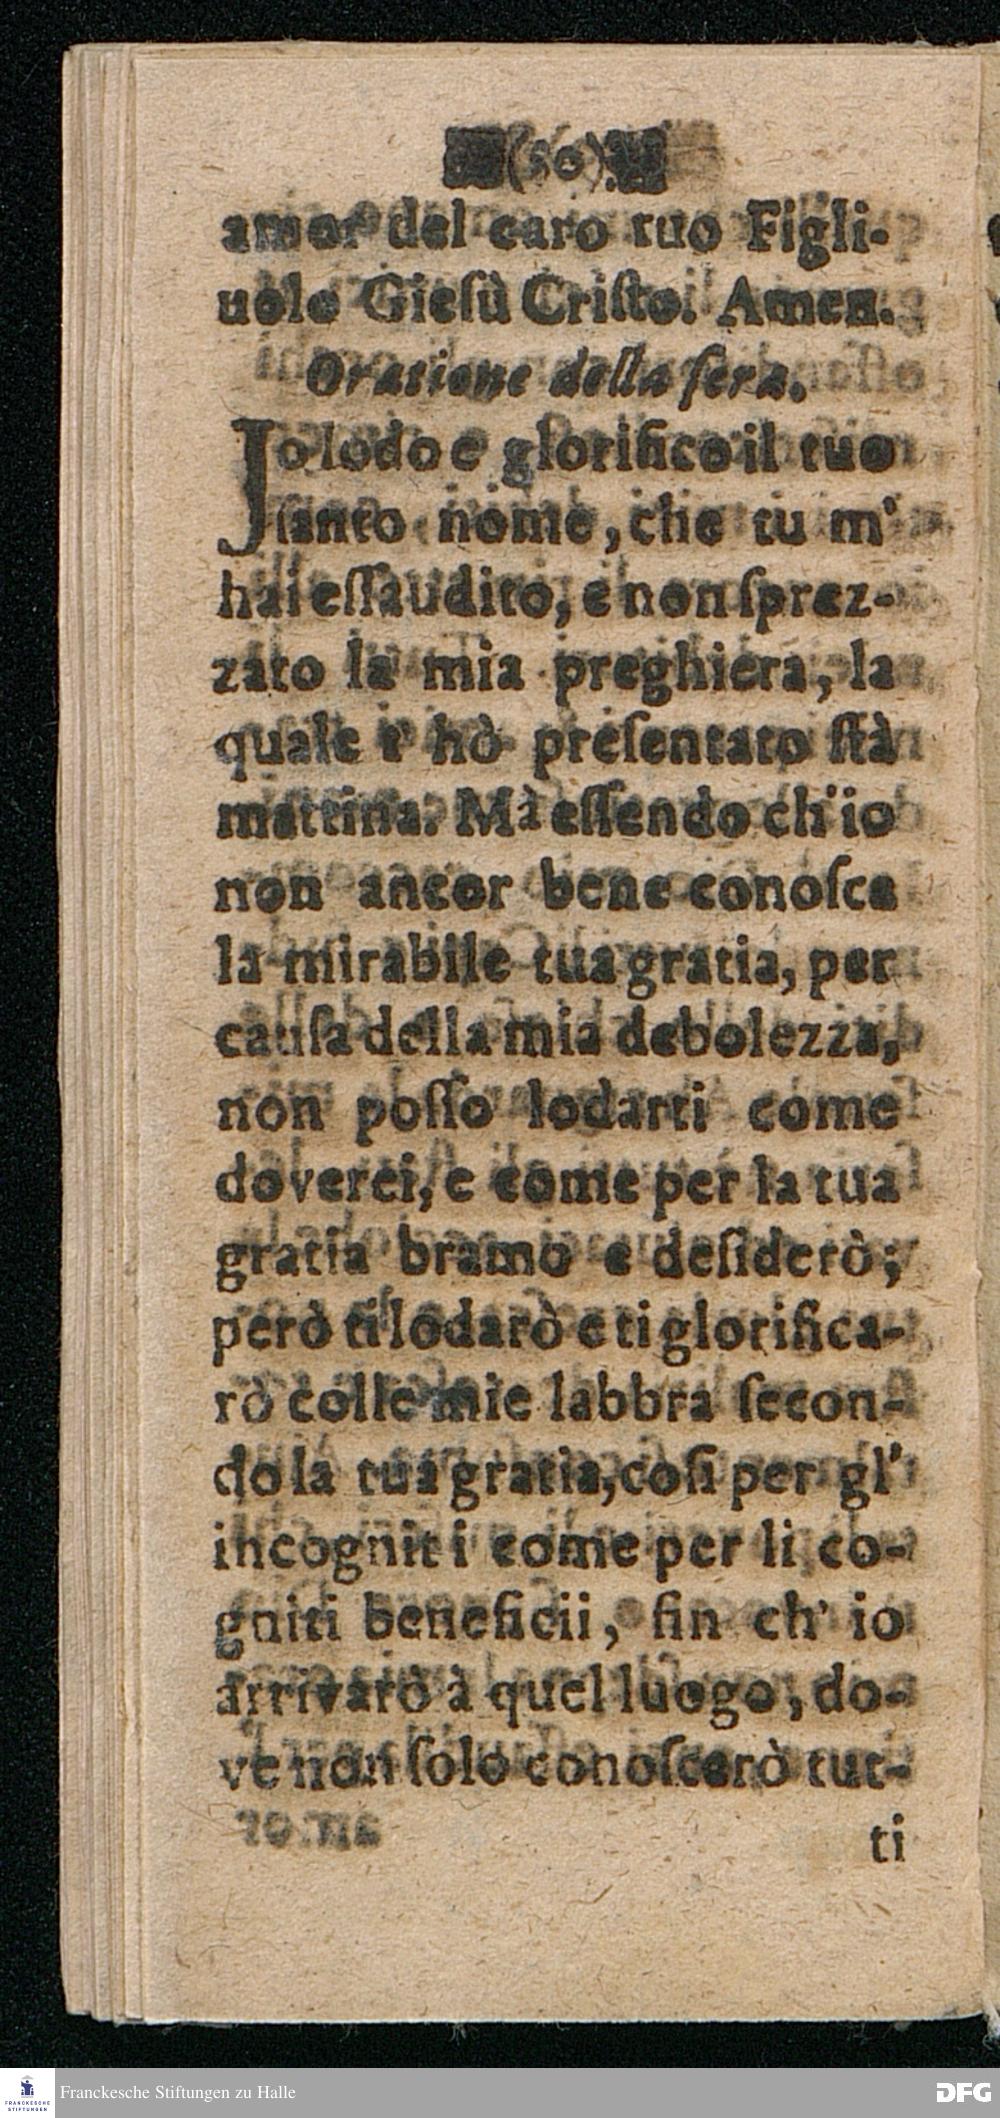 (50)
amor del caro tuo Figli-
uolo Gieſù Criſto. Amen.
Oratione della ſera.
Jo lodo e glorifico il tuo
ſanto nome, che tu m'
hai eſſaudito, e non ſprez-
zato la mia preghiera, la
quale t' hò preſentato ſtà
mattina. Mà eſſendo ch'io
non ancor bene conoſca
la mirabile tua gratia, per
cauſa della mia debolezza,
non poſſo lodarti come
doverei, e come per la tua
gratia bramo e deſiderò;
però ti lodarò e ti glorifica-
rò colle mie labbra ſecon-
do la tua gratia, coſi per gl'
incogniti come per li co-
gniti beneficii, fin ch' io
arrivarò à quel luogo, do-
ve non ſolo conoſcerò tut-
ti
Franckesche Stiftungen zu Halle
FRANCKESCHE
STIFTUNGEN
DFG